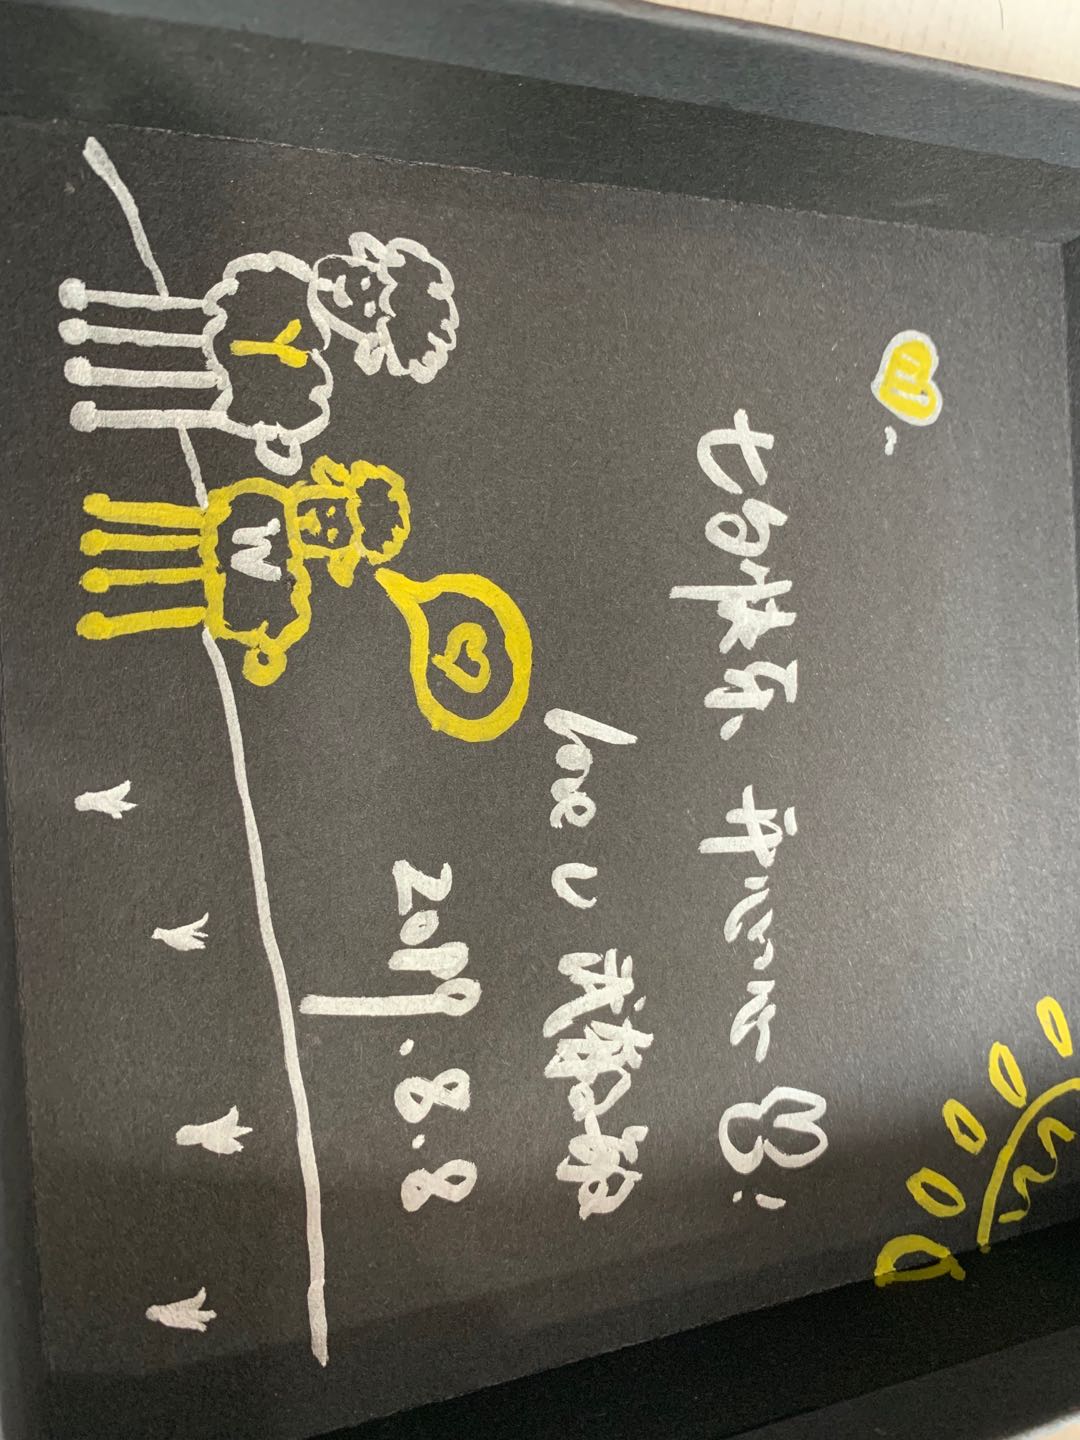 七夕快乐 开心心!
love u 武毅敏
2019.8.8
Y W